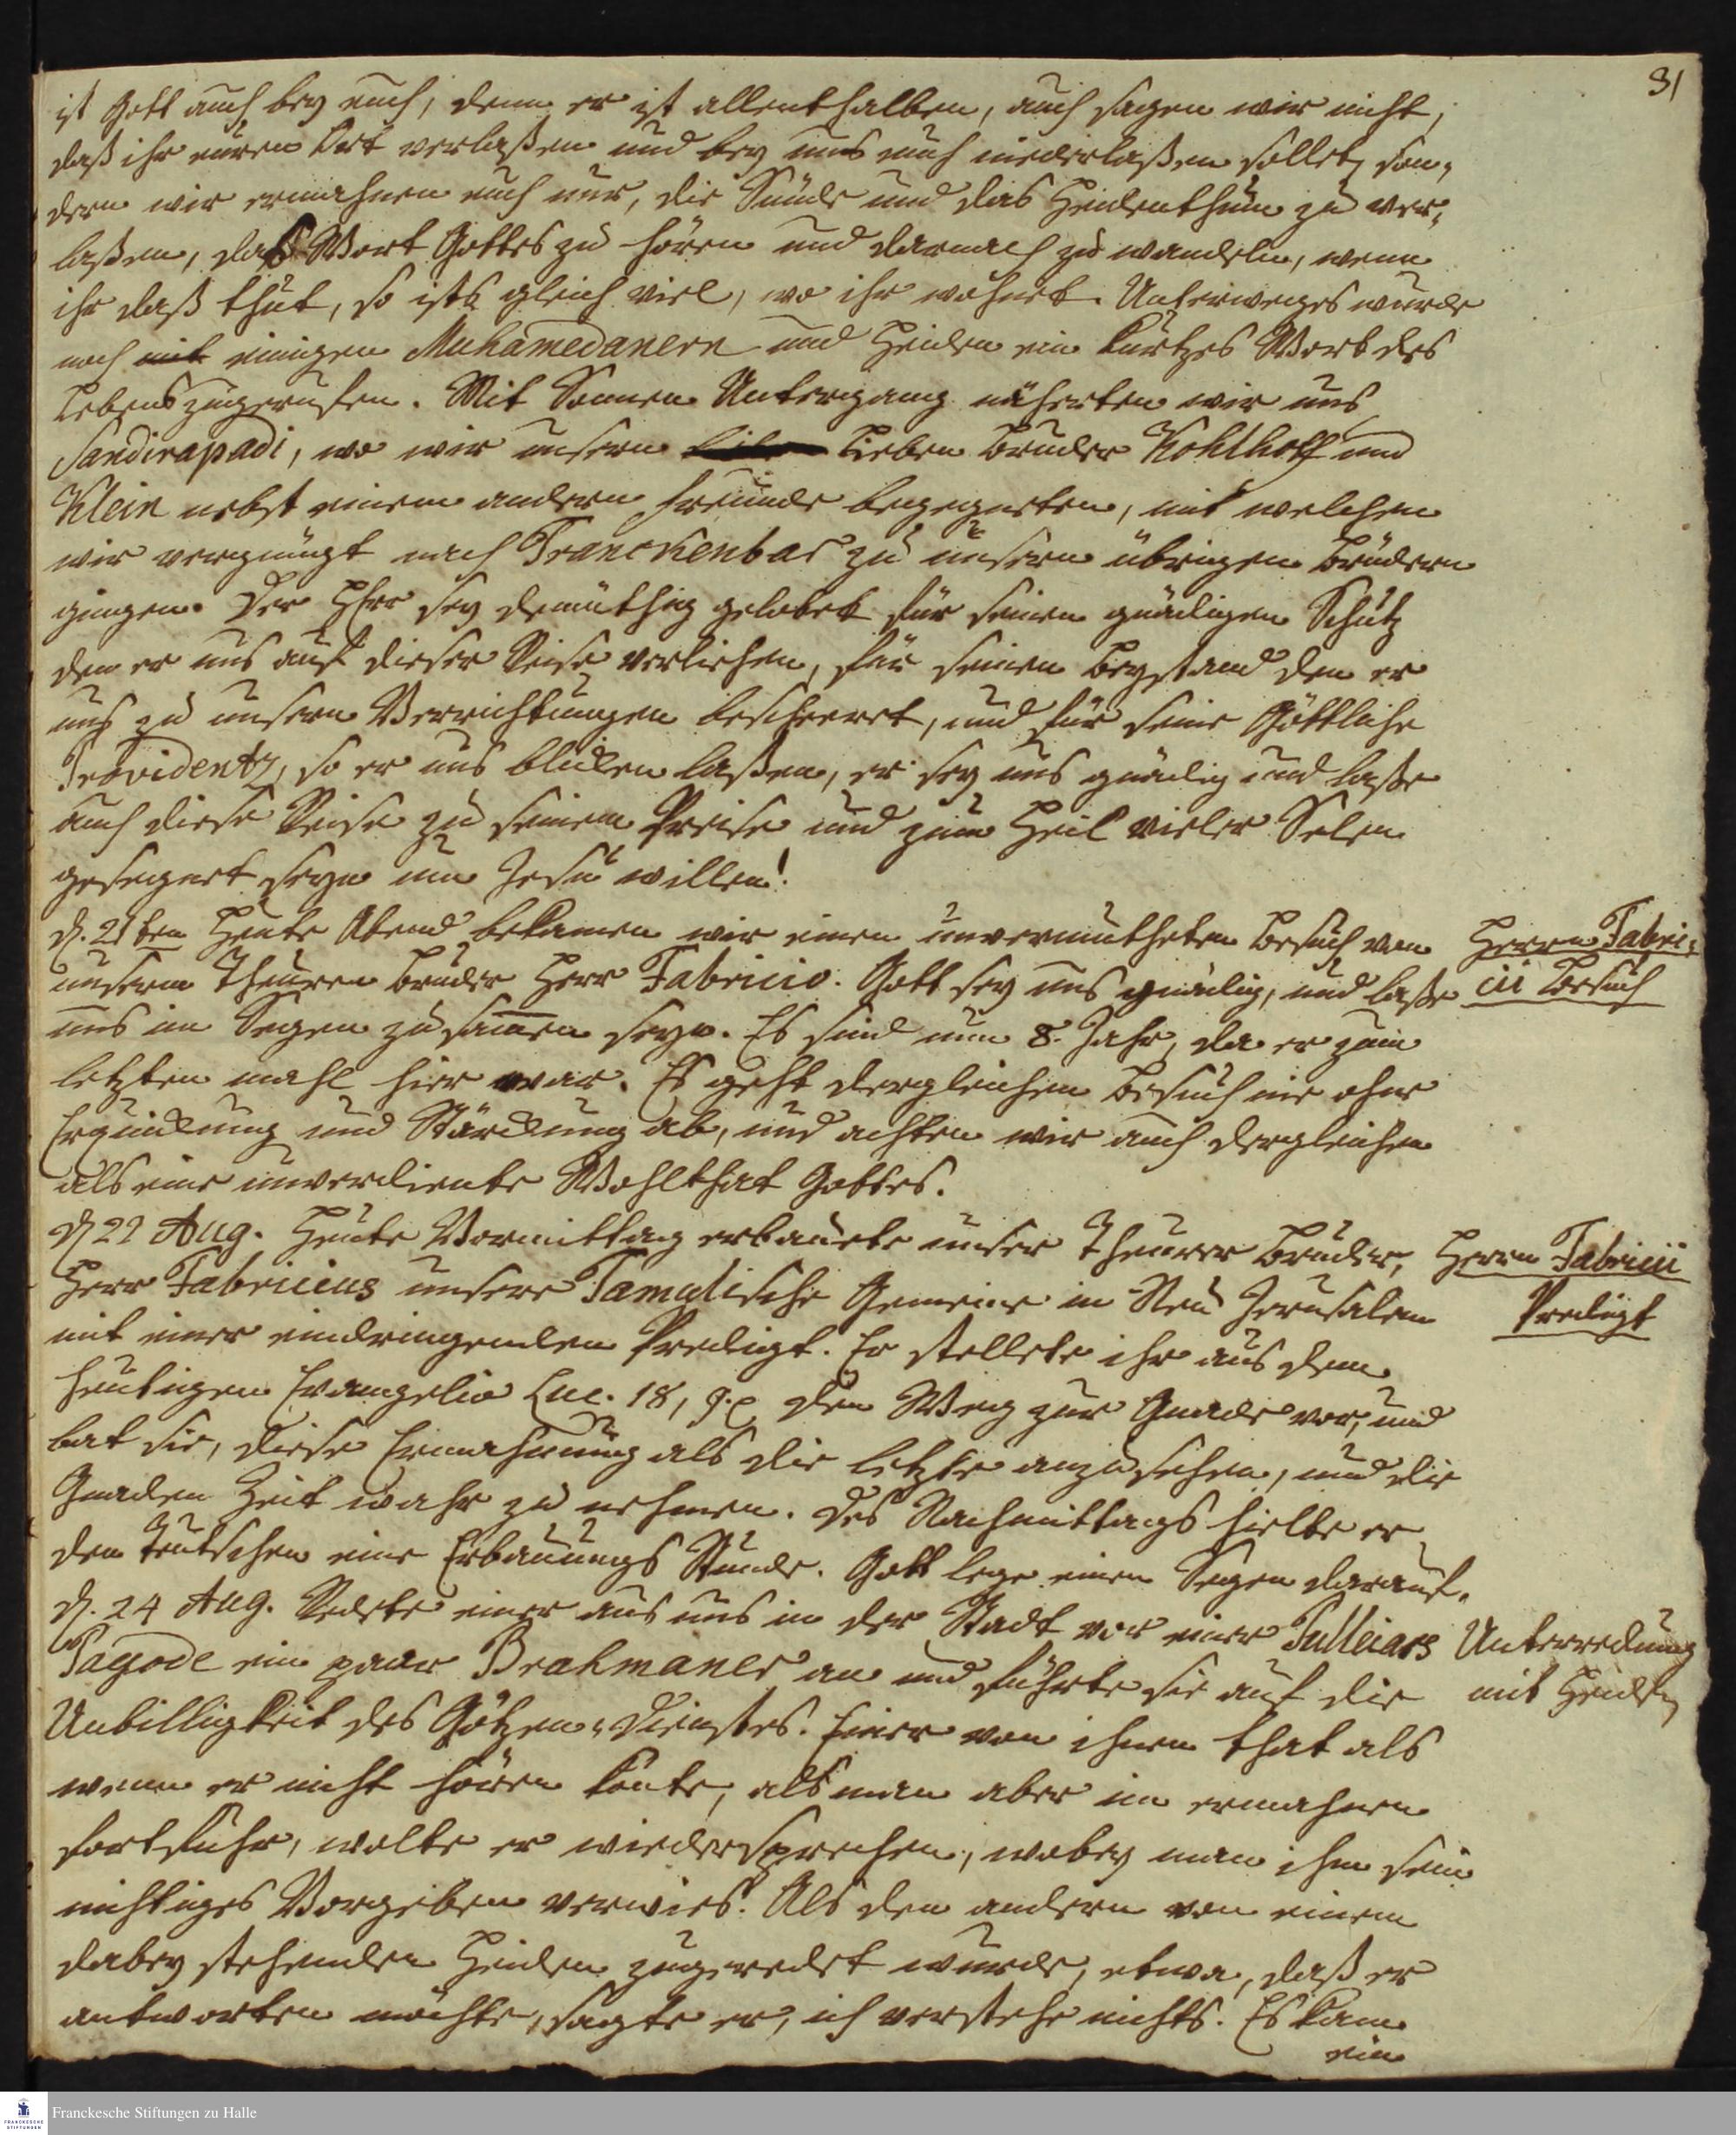 31
ist Gott auch bey euch, denn er ist allenthalben, auch sagen wir nicht,
daß ihr euren Ort verlaßen und bey uns euch niederlaßen sollet, son„
dern wir ermahnen euch nur, die Sünde und das Heidenthum zu ver„
laßen, das Wort Gottes zu hören und darnach zu wandeln, wenn
ihr daß thut, so ists gleich viel, wo ihr wohnet. Unterweges wurde
noch mit einigen Muhamedanern und Heiden ein kurtzes Wort des
Lebens zugerufen. Mit Sonnen Untergang näherten wir uns
Sandirapadi, wo wir unsern lieben Bruder Kohlhoff und
Klein nebst einem andern Freunde begegneten, mit welchen
wir vergnügt nach Tranckenbar zu unsern übrigen Brüdern
gingen. Der HErr sey demüthig gelobet für seinen gnädigen Schutz
den er uns auf dieser Reise verliehen, für seinen Beystand den er
uns zu unsern Verrichtungen bescheeret, und für seine Göttliche
Providentz, so er uns blicken laßen, er sey uns gnädig und laße
auch diese Reise zu seinem Preise und zum Heil vieler Selen
gesegnet seyn um Jesu willen!
d. 21ten Heute Abend bekamen wir einen unvermutheten Besuch von
Herrn Fabri„
unserm Theuren Bruder Herr Fabricio. Gott sey uns gnädig, und laße
cii Besuch
uns im Segen zusam̅en seyn. Es sind nun 8. Jahr, da er zum
letzten mahl hier war. Es geht dergleichen Besuch nie ohne
Erquickung und Stärckung ab, und achten wir auch dergleichen
als eine unverdiente Wohlthat Gottes.
d 22 Aug. Heute Vormittag erbauete unser Theurer Bruder,
Herrn Fabricii
Herr Fabricius unsere Tamulische Gemeine in Neu Jerusalem
Predigt
mit einer eindringenden Predigt. Er stellete ihr aus dem
heutigen Evangelio Luc. 18, 9. den Weg zur Gnade vor, und
bat sie, diese Ermahnung als die letzte anzusehen, und die
Gnaden Zeit wahr zu nehmen. Des Nachmittags hielte er
den Teutschen eine Erbauungs Stunde. Gott lege einen Segen darauf.
d. 24 Aug. Redete einer aus uns in der Stadt vor einer Pulleiars
Unterredung
Pagode ein paar Brahmaner an und führte sie auf die
mit Heiden
Unbilligkeit des Götzen„Dienstes. Einer von ihnen that als
wenn er nicht hören könte, als man aber im ermahnen
fortfuhr, wolte er wiedersprechen, wobey man ihm sein
nichtiges Vorgeben verwies. Als den andern von einem
dabey stehenden Heiden zugeredet wurde, etwa, daß er
antworten möchte, sagte er, ich verstehe nichts. Es kam
ein
Franckesche Stiftungen zu Halle